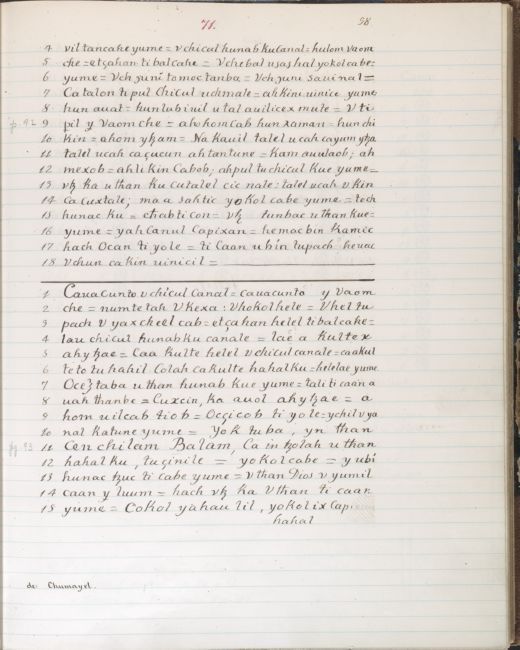 71.
58
4 vil tancahe yume = v chicul hunab ku Canal = hulom vaom
5 che = etçahan ti balcahe = Vchebal usashal yokolcabe:
6 yume = Vch juni tomoctanba = Vch juni sauinal =
7 Catalon ti pul Chicul uchmale = ah kini uinice yume
8 hun auat = hun lub iuil u tal auilicex mute = V ti
p. 92 9 pil y Vaom che = ahohom Cab hun xaman = hun chi
10 kin = ahom yꜩam = Na Kauil talel u cah cayum yꜩa
11 talel ucah caçucun ah tantune = Kam auulaob; ah
12 mexob = ah li Kin Cabob; ahpul tu chicul Kue yume =
13 vꜩ ka u than ku cutalel cic nale: talel ucah v kin
14 ca cuxtale; ma a sahtic yokol cabe yume = tech
15 hunac ku = chabticon = vꜩ tunbac u than kue =
16 yume = yah Canul Capixan = hemac bin Kamic
17 hach Ocan ti yole = ti Caan u bin tupach heuac
18 v chun ca kin uinicil =
1 Cauacunto v chicul Canal = cauacunto y Vaom
2 che = numtetah V Kexa: Vhokol hele = Vhel tu
3 pach v yax cheel cab = etçahan helel ti balcahe =
4 lau chicul hunab ku canale = lae a Kultex
5 ah yꜩae = Caa Kulte helel v chicul canale = caa kul
6 te to tu hahil Colah ca kulte hahal ku = helelae yume
7 Oceꜩtaba u than hunab Kue yume = tali ti caan a
8 uah thanbe = Cuxcin, ka auol ah yꜩae = a
9 hom uilcab tiob = Ocçicob ti yole = ychil v ya
10 nal katune yume = Yok tuba, yn than
pg 93 11 Cen chilam Balam, Ca in tꜩolah u than
12 hahal ku, tuçinile = yokol cabe = y ubi
13 hunac ꜩuc ti cabe yume = v than Dios v yumil
14 caan y luum = hach vꜩ ka V than ti caan
15 yume = Cokol yahau lil, yokol ix Capix
hahal
de Chumayel.